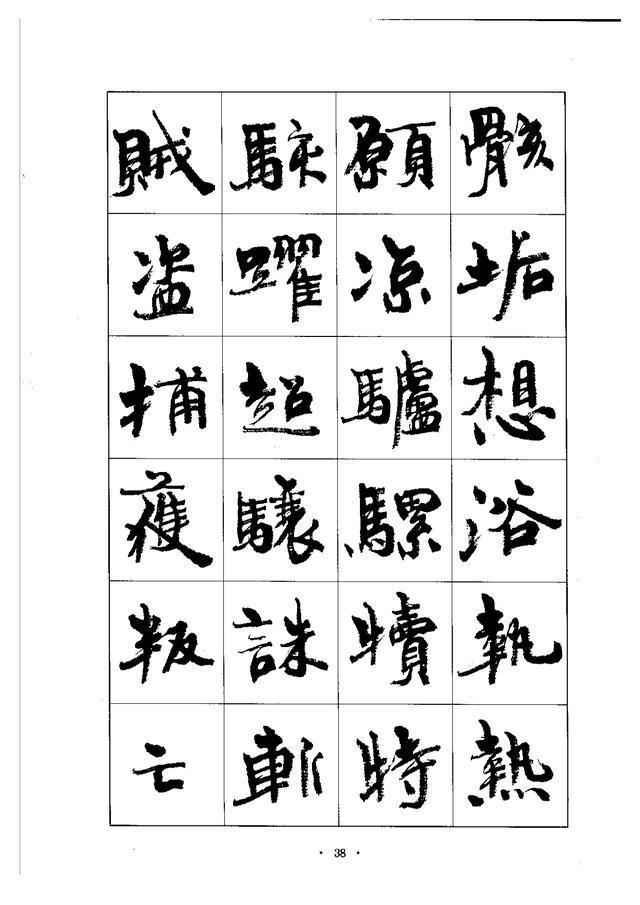 骸垢想浴執熱
願凉驢騾犢特
駭躍超驤誅斬
賊盗捕獲叛亡
· 38 ·